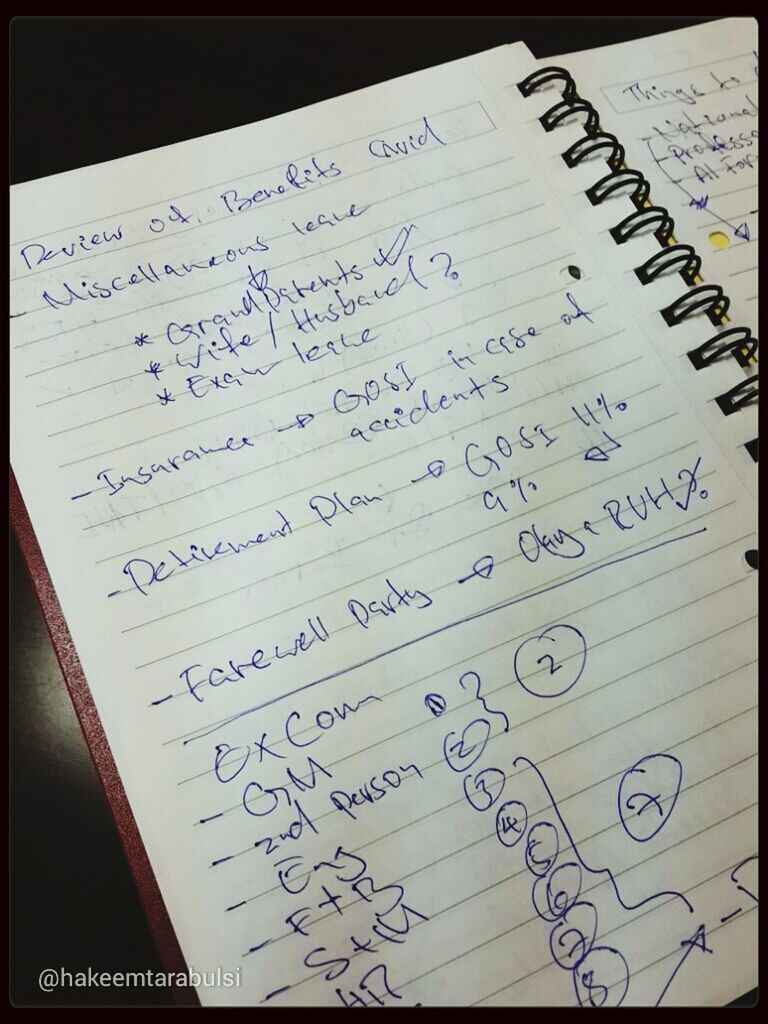 Review of Benefits
- Miscellaneous leave
* Grandparents ✓
* Wife / Husband ?
* Exam leave
- Insurance → GOSI in case of
accidents
- Retirement Plan → GOSI 11%
9%
- Farewell Party → Olaya RUH
ExCom
- GM 1
2
- 2nd Person 2
- Eng 3
- F+B 4
- S+M 5
HR 6
7
8
7
Things to
- National
-
- AI For
@hakeemtarabulsi